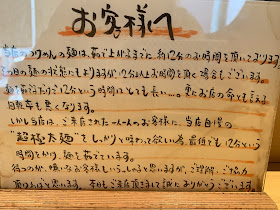 お客様へ
当店のつけめんの麺は、茹で上がるまでに、約12分のお時間を頂いております。
その日の麺の状態にもよりますが、12分以上お時間を頂く場合もございます。
麺を茹でる約12分という時間はとても長い…。更にお店の命とも言える
回転率も悪くなります。
しかし当店は、ご来店された一人一人のお客様に、当店自慢の
"超極太麺"をしっかりと味わって欲しい為、最低でも12分という
時間をかけ、麺を茹でています。
待つのが、嫌いなお客様もいらっしゃると思いますが、ご理解、ご協力
頂ければと思います。本日もご来店頂きまして誠にありがとうございます。